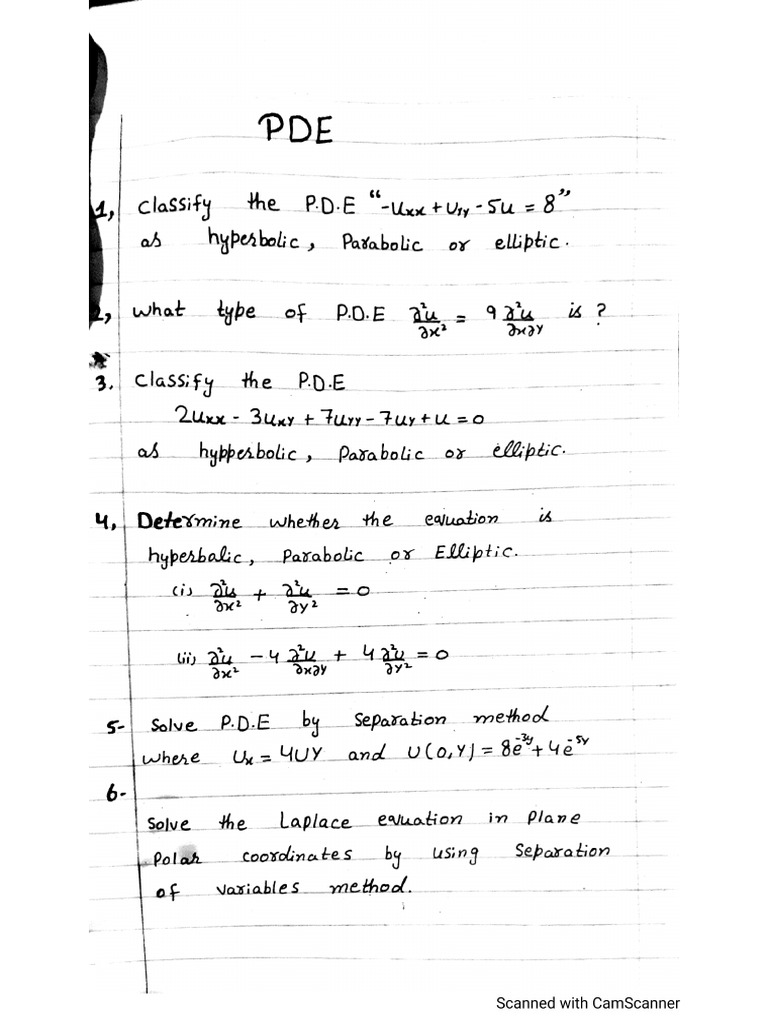 PDE
1, Classify the P.D.E “-Uxx + Uyy - 5u = 8”
as hyperbolic, Parabolic or elliptic.
2, What type of P.D.E ∂²u/∂x² = 9 ∂²u/∂x∂y is ?
3. Classify the P.D.E
2Uxx - 3Uxy + 7Uyy - 7Uy + U = 0
as hypperbolic, Parabolic or elliptic.
4, Determine whether the equation is
hyperbalic, Parabolic or Elliptic.
(i) ∂²u/∂x² + ∂²u/∂y² = 0
(ii) ∂²u/∂x² - 4 ∂²u/∂x∂y + 4 ∂²u/∂y² = 0
5- Solve P.D.E by Separation method
where Ux = 4UY and U(0,Y) = 8e^-3y + 4e^-5y
6-
Solve the Laplace equation in Plane
Polar coordinates by using Separation
of variables method.
Scanned with CamScanner